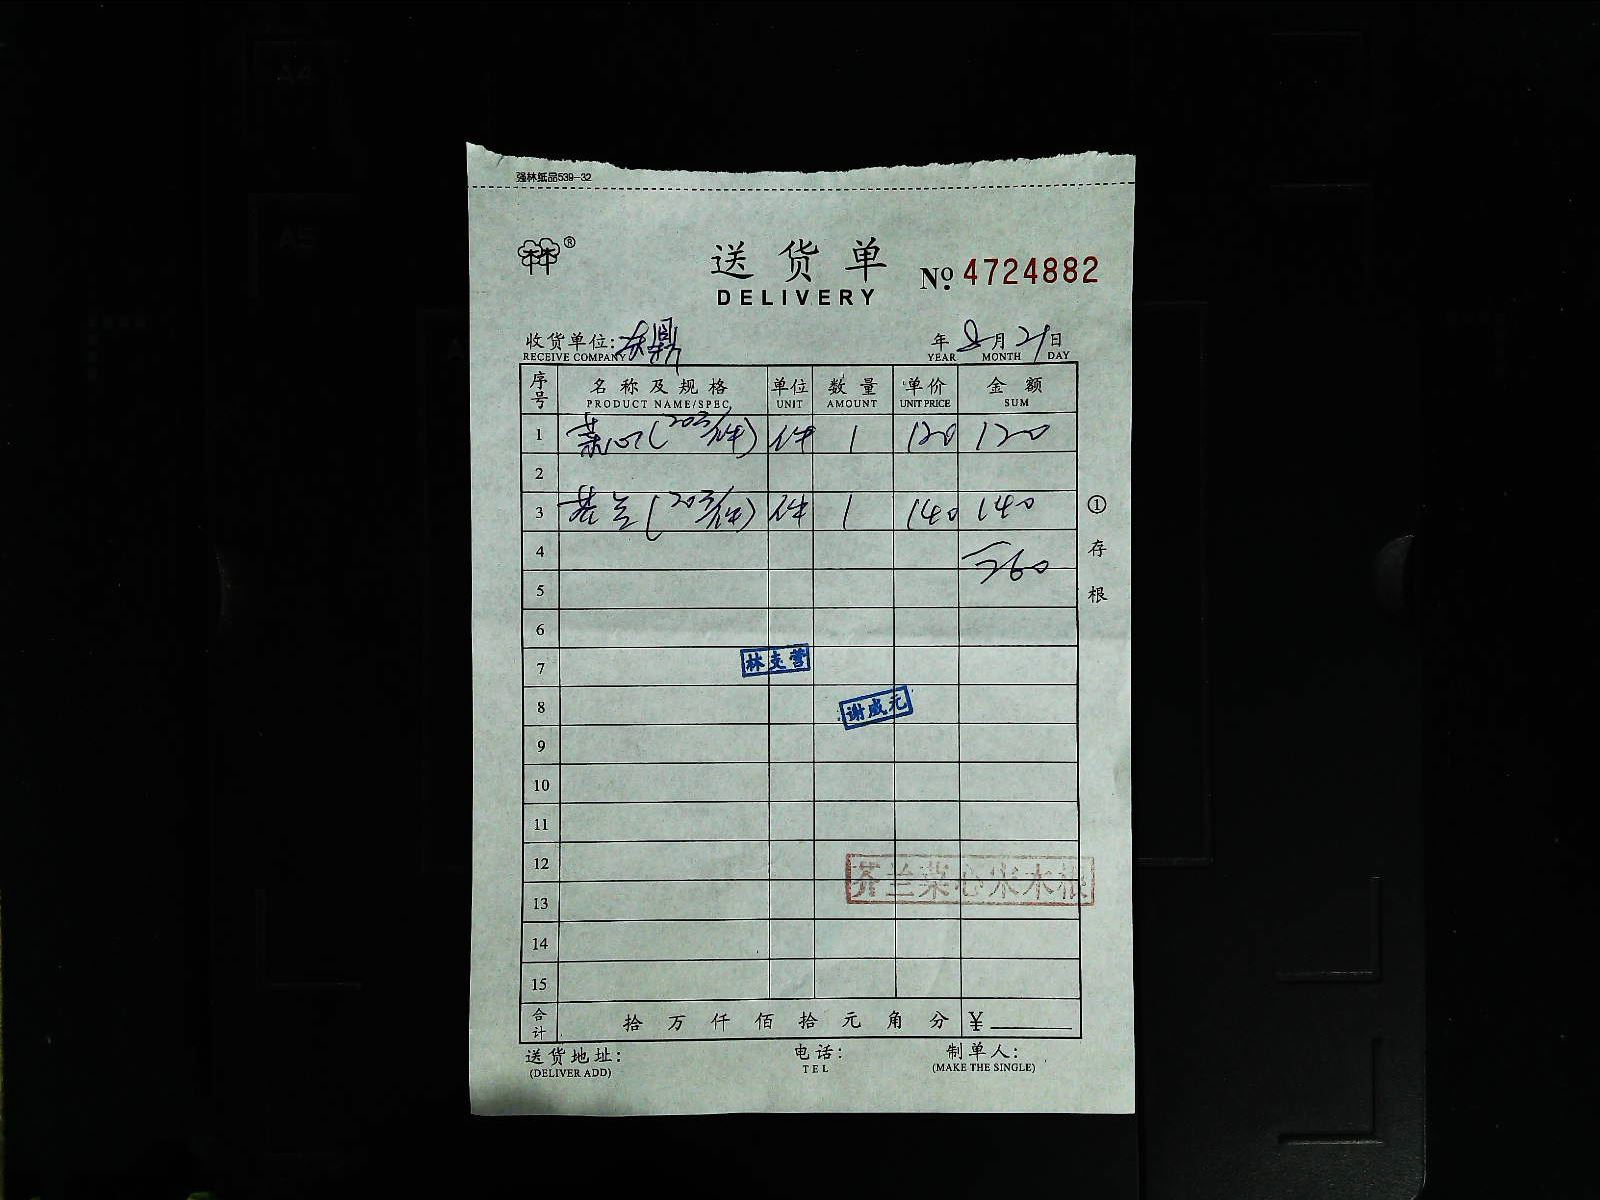 强林纸品539-32
林林®
送货单
DELIVERY
No. 4724882
收货单位: 东鼎 年 8月 21日
RECEIVE COMPANY YEAR MONTH DAY
序号 名称及规格 单位 数量 单价 金额
PRODUCT NAME/SPEC UNIT AMOUNT UNIT PRICE SUM
1 菜心(20斤/件) 件 1 120 120
2
3 芥兰(20斤/件) 件 1 140 140
4
260
5
6
7 林克营
8 谢咸元
9
10
11
12
芥兰菜心宋木根
13
14
15
合计 拾万仟佰拾元角分 ¥
送货地址: 电话: 制单人:
(DELIVER ADD) TEL (MAKE THE SINGLE)
①存根
A4
A5